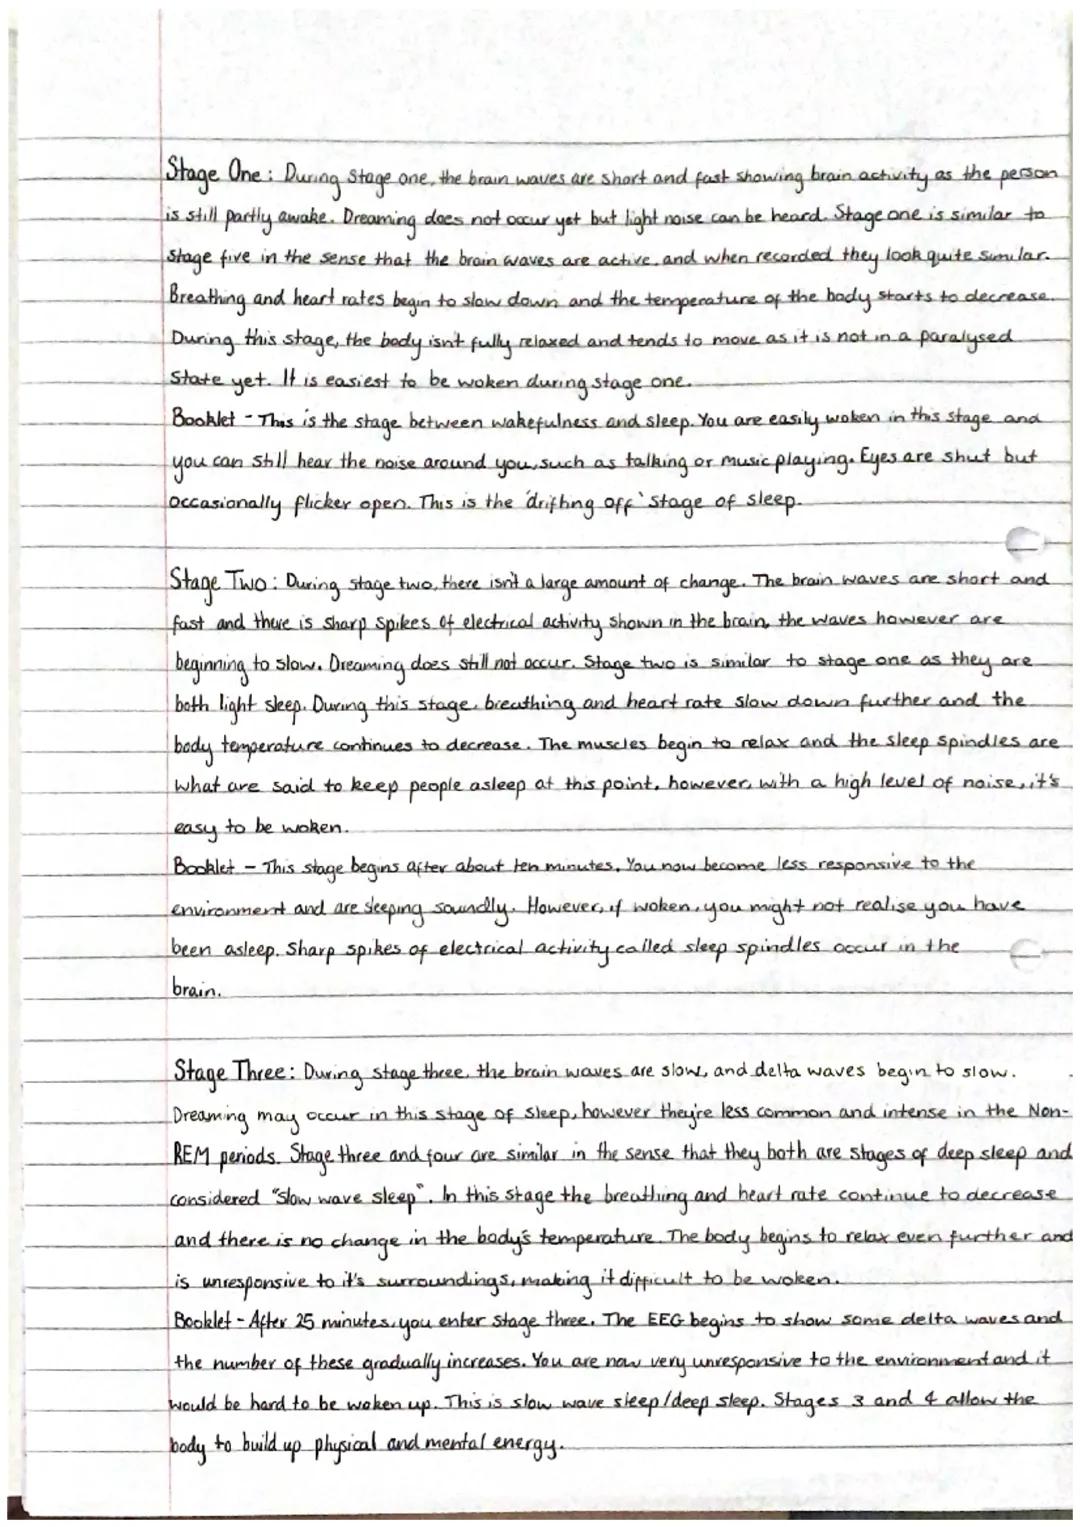 Stage One: During stage one, the brain waves are short and fast showing brain activity as the person
is still partly awake. Dreaming does not occur yet but light noise can be heard. Stage one is similar to
stage five in the sense that the brain waves are active, and when recorded they look quite similar.
Breathing and heart rates begin to slow down and the temperature of the body starts to decrease.
During this stage, the body isn't fully relaxed and tends to move as it is not in a paralysed
state yet. It is easiest to be woken during stage one.
Booklet - This is the stage between wakefulness and sleep. You are easily woken in this stage and
you can still hear the noise around you, such as talking or music playing. Eyes are shut but
occasionally flicker open. This is the 'drifting off' stage of sleep.
Stage Two: During stage two, there isn't a large amount of change. The brain waves are short and
fast and there is sharp spikes of electrical activity shown in the brain, the waves however are
beginning to slow. Dreaming does still not occur. Stage two is similar to stage one as they are
both light sleep. During this stage, breathing and heart rate slow down further and the
body temperature continues to decrease. The muscles begin to relax and the sleep spindles are
what are said to keep people asleep at this point, however, with a high level of noise, it's
easy to be woken.
Booklet - This stage begins after about ten minutes. You now become less responsive to the
environment and are sleeping soundly. However, if woken, you might not realise you have
been asleep. Sharp spikes of electrical activity called sleep spindles occur in the
brain.
Stage Three: During stage three, the brain waves are slow, and delta waves begin to slow.
Dreaming may occur in this stage of sleep, however they're less common and intense in the Non-
REM periods. Stage three and four are similar in the sense that they both are stages of deep sleep and
considered "slow wave sleep". In this stage the breathing and heart rate continue to decrease
and there is no change in the body's temperature. The body begins to relax even further and
is unresponsive to it's surroundings, making it difficult to be woken.
Booklet - After 25 minutes, you enter stage three. The EEG begins to show some delta waves and
the number of these gradually increases. You are now very unresponsive to the environment and it
would be hard to be woken up. This is slow wave sleep/deep sleep. Stages 3 and 4 allow the
body to build up physical and mental energy.